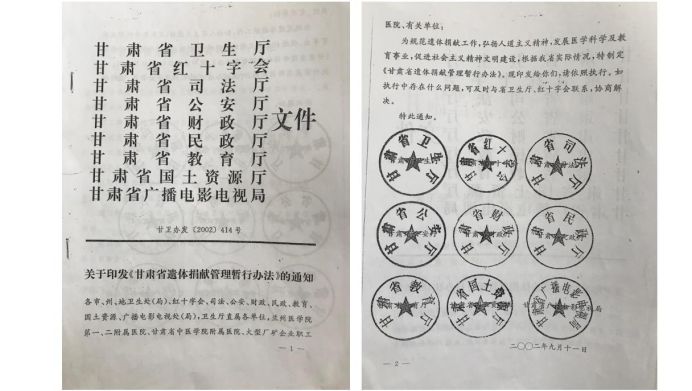 甘肃省卫生厅
甘肃省红十字会
甘肃省司法厅
甘肃省公安厅
甘肃省财政厅
甘肃省民政厅
甘肃省教育厅
甘肃省国土资源厅
甘肃省广播电影电视局
文件
甘卫办发〔2002〕414号
关于印发《甘肃省遗体捐献管理暂行办法》的通知
各市、州、地卫生处(局)、红十字会、司法、公安、财政、民政、教育、
国土资源、广播电影电视处(局)、卫生厅直属各单位,兰州医学院
第一、二附属医院、甘肃省中医学院附属医院、大型厂矿企业职工
—1—
医院、有关单位:
为规范遗体捐献工作,弘扬人道主义精神,发展医学科学及教
育事业,促进社会主义精神文明建设,根据我省实际情况,特制定
《甘肃省遗体捐献管理暂行办法》。现印发给你们,请依照执行。如
执行中存在什么问题,可及时与省卫生厅、红十字会联系,协商解
决。
特此通知。
甘肃省卫生厅
甘肃省红十字会
甘肃省司法厅
甘肃省公安厅
甘肃省财政厅
甘肃省民政厅
甘肃省教育厅
甘肃省国土资源厅
甘肃省广播电影电视局
二〇〇二年九月十一日
—2—